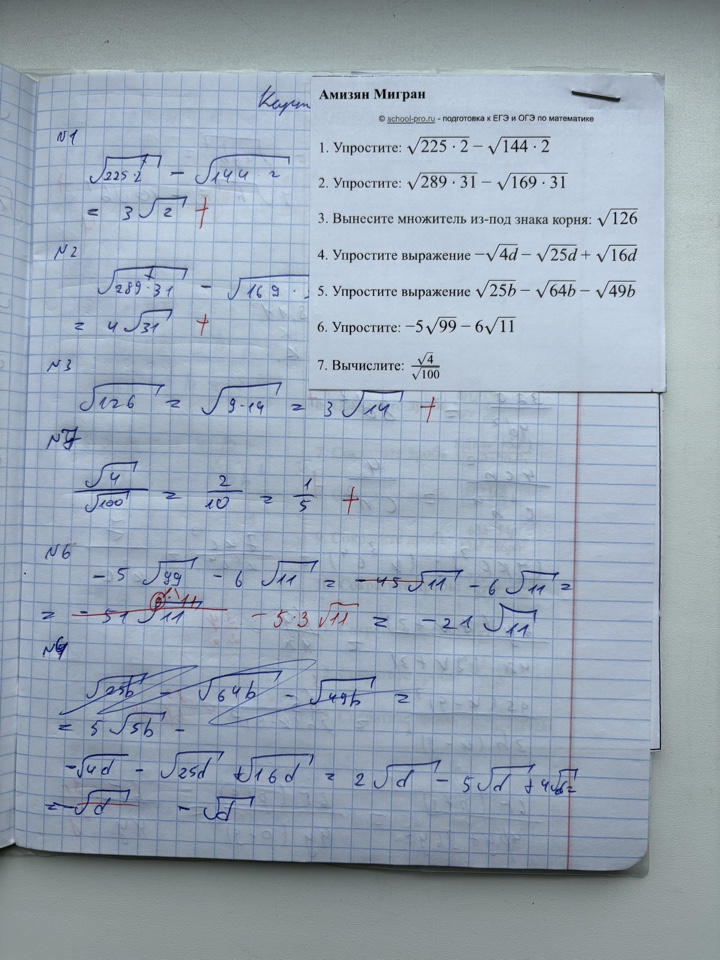 Амизян Мигран
© school-pro.ru - подготовка к ЕГЭ и ОГЭ по математике
1. Упростите: √(225 · 2) − √(144 · 2)
2. Упростите: √(289 · 31) − √(169 · 31)
3. Вынесите множитель из-под знака корня: √126
4. Упростите выражение −√(4d) − √(25d) + √(16d)
5. Упростите выражение √(25b) − √(64b) − √(49b)
6. Упростите: −5√99 − 6√11
7. Вычислите: √4/√100
№1
√(225·2) − √(144 2
= 3√2 +
№2
√(289·31) − √(169 ·
= 4√31 +
№3
√126 = √(9·14) = 3√14 +
№7
√4/√100 = 2/10 = 1/5 +
№6
−5√99 − 6√11 = −45√11 − 6√11 =
= −51√11 − 5·3√11 = −21√11
√(25b) − √(64b) − √(49b) =
= 5√(5b) −
−√(4d) − √(25d) + √(16d) = 2√d − 5√d + 4√d =
= −√d − √d